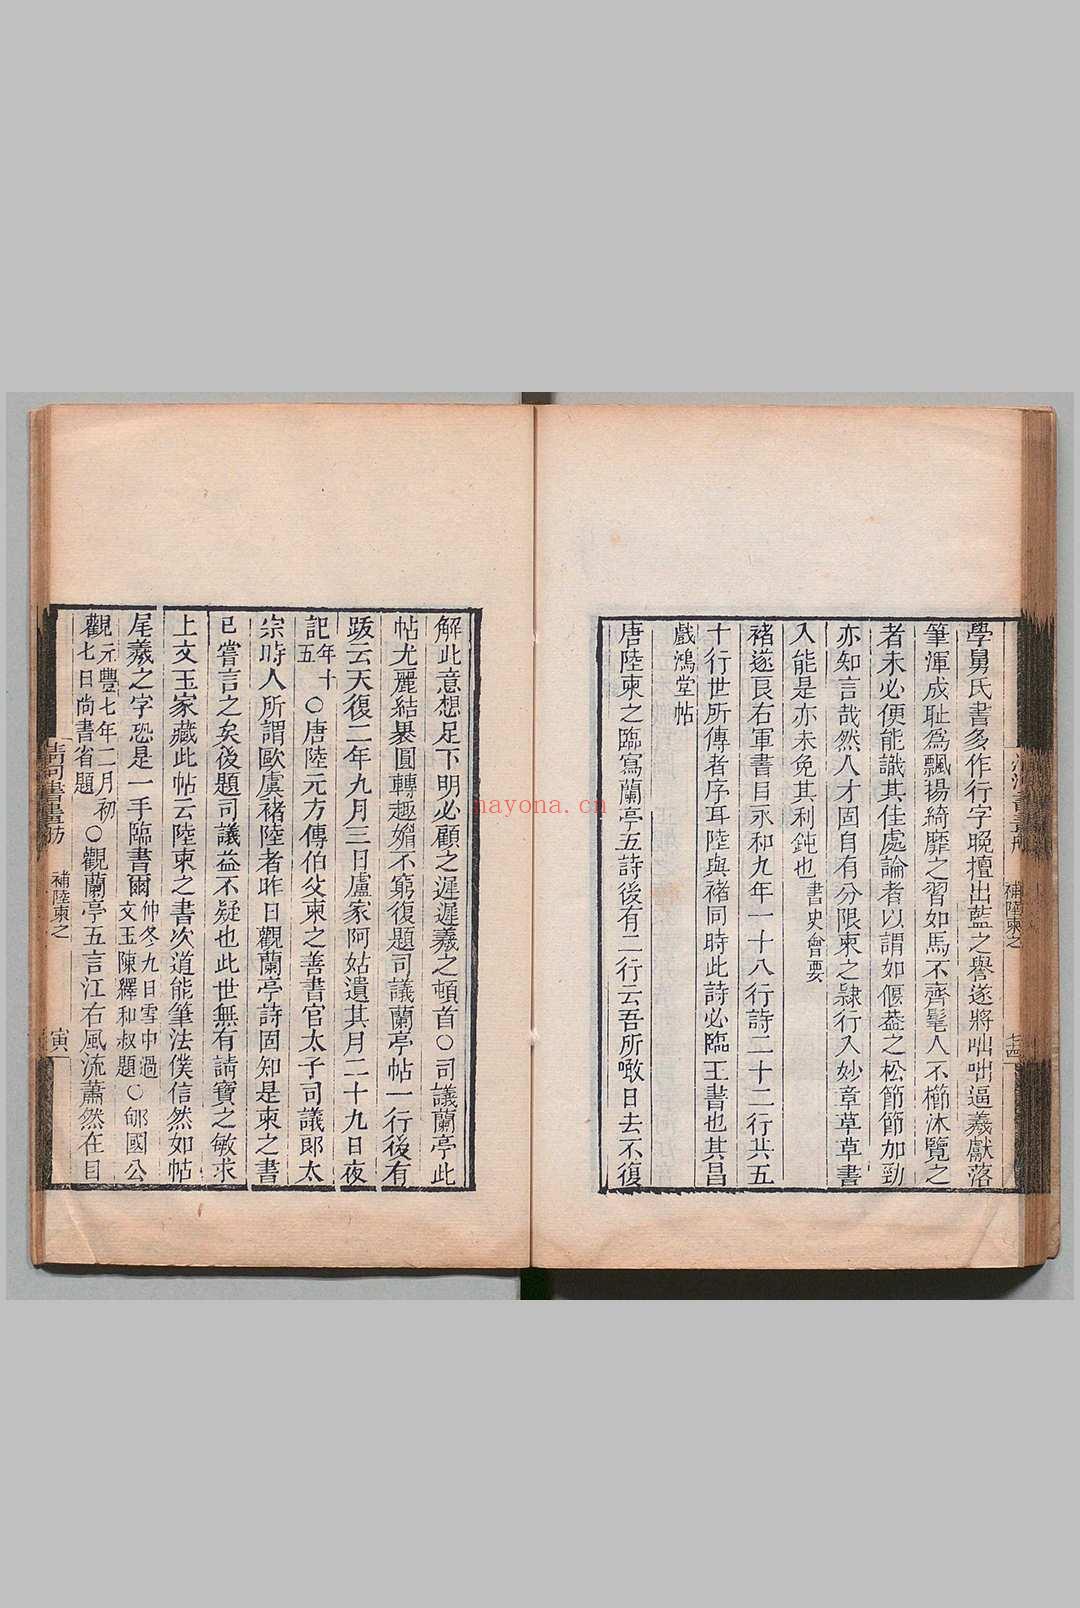 學舅氏書多作行字晚擅出藍之譽遂將咄咄逼羲獻落
筆渾成耻爲飄揚綺靡之習如馬不齊髦人不櫛沐覽之
者未必便能識其佳處論者以謂如偃葢之松節節加勁
亦知言哉然人才固自有分限柬之𨽻行入妙章草草書
入能是亦未免其利鈍也 書史會要
褚遂良右軍書目永和九年一十八行詩二十二行共五
十行世所傳者序耳陸與褚同時此詩必臨王書也其昌
戲鴻堂帖
唐陸柬之臨寫蘭亭五詩後有二行云吾所噉日去不復
補陸柬之
解此意想足下明必顧之遲遲羲之頓首〇司議蘭亭此
帖尤麗結裹圓轉趣媚不窮復題司議蘭亭帖一行後有
跋云天復二年九月三日盧家阿姑遺其月二十九日夜
記年十五〇唐陸元方傳伯父柬之善書官太子司議郎太
宗時人所謂歐虞褚陸者昨日觀蘭亭詩固知是柬之書
已嘗言之矣後題司議益不疑也此世無有請寶之敏求
上文玉家藏此帖云陸柬之書次道能筆法僕信然如帖
尾羲之字恐是一手臨書爾仲冬九日雪中過文玉陳繹和叔題〇郇國公
觀元豐七年二月初七日尚書省題〇觀蘭亭五言江右風流蕭然在目
補陸柬之
寅
nayona.cn